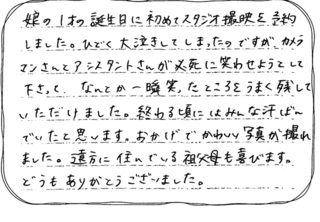 娘の1才の誕生日に初めてスタジオ撮映を予約
しました。ひどく大泣きしてしまったのですが、カメラ
マンさんとアシスタントさんが必死に笑わせようとして
下さって、なんとか一瞬笑ったところをうまく残して
いただけました。終わる頃にはみんな汗ばん
でいたと思います。おかげでかわいい写真が撮れ
ました。遠方に住んでいる祖父母も喜びます。
どうもありがとうございました。